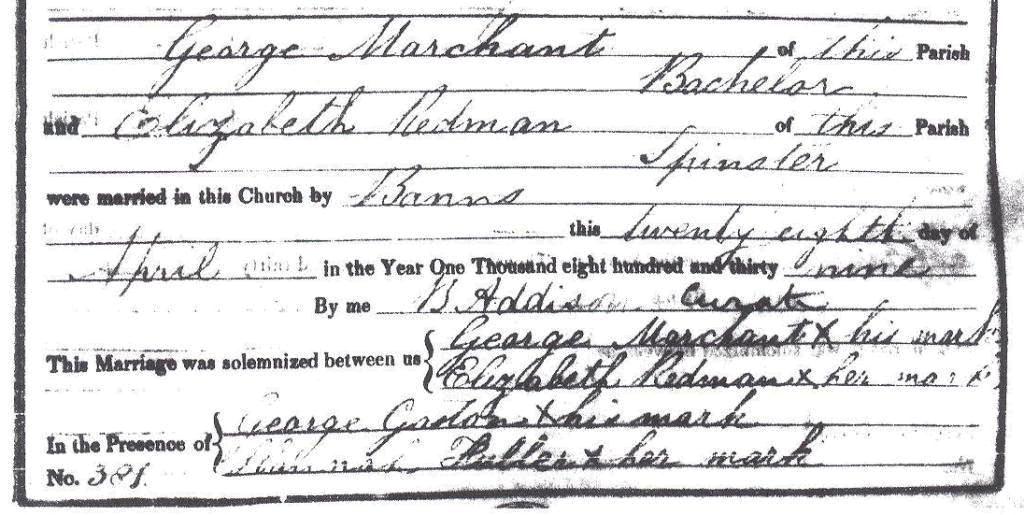 George Marchant of this Parish
Bachelor
and Elizabeth Redman of this Parish
Spinster
were married in this Church by Banns
this twenty eighth day of
April in the Year One Thousand eight hundred and thirty nine
By me B Addison Curate
This Marriage was solemnized between us { George Marchant x his mark
Elizabeth Redman x her mark
In the Presence of { George x his mark
Fuller x her mark
No. 381.